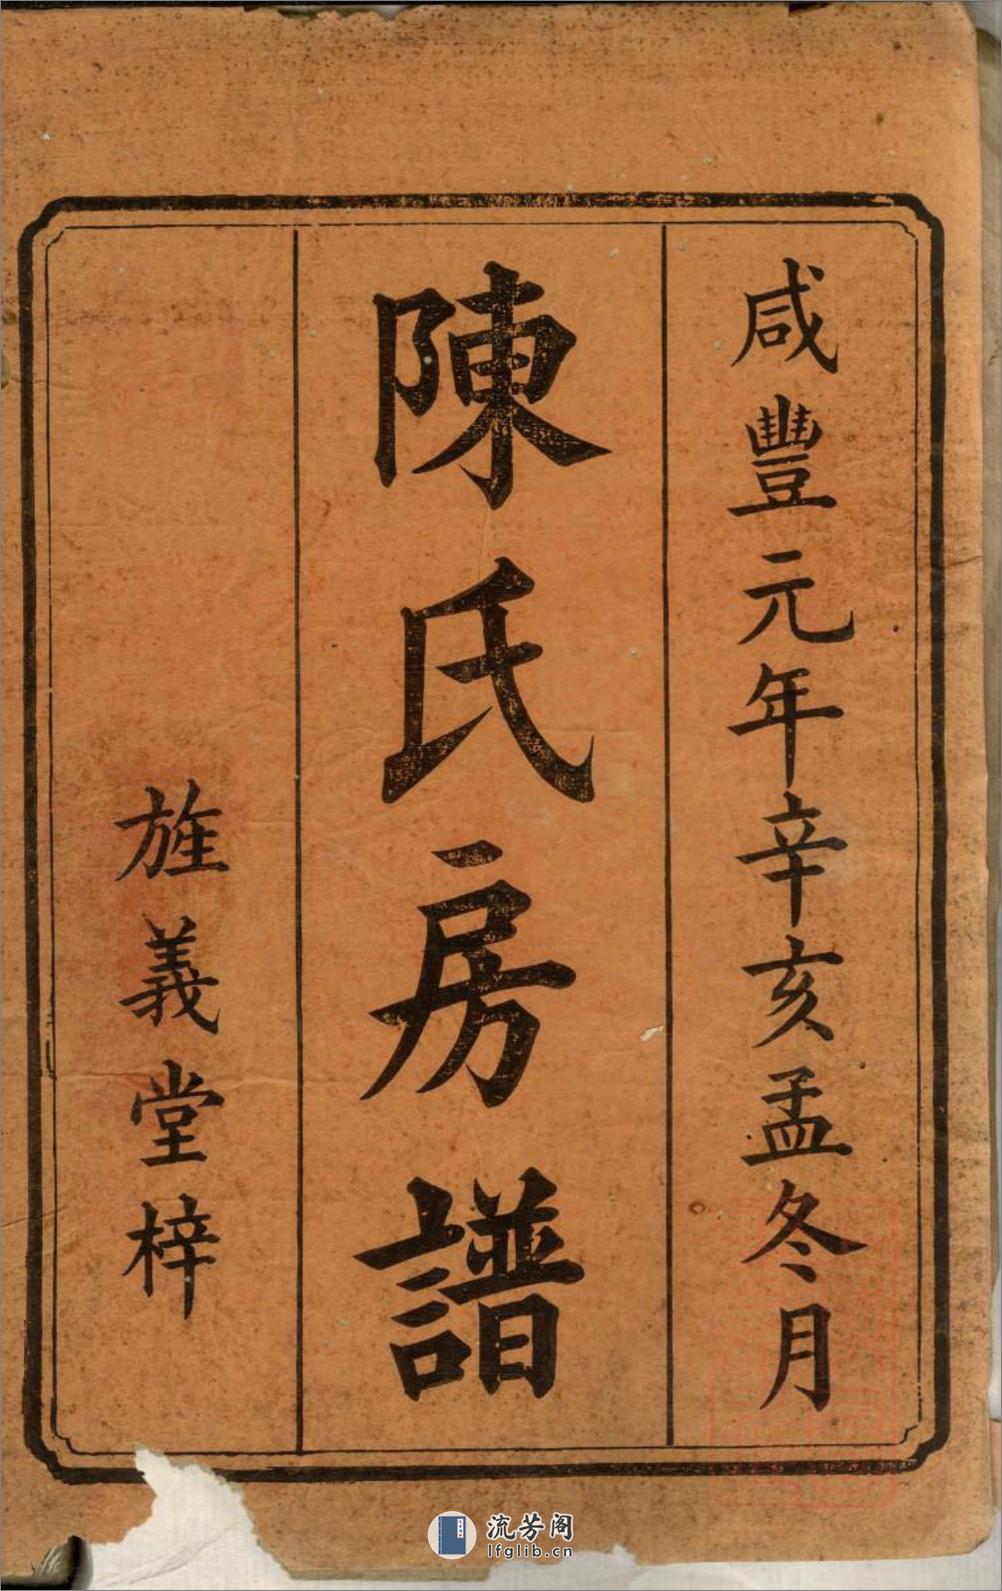 咸豐元年辛亥孟冬月
陳氏房譜
旌義堂梓
流芳阁
lfglib.cn